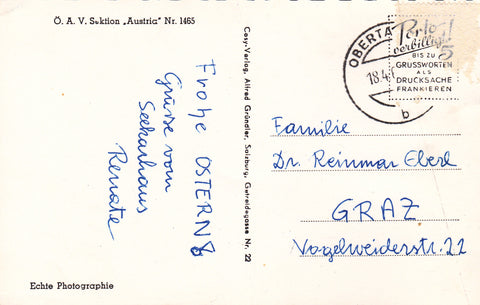 Ö. A. V. Sektion „Austria“ Nr. 1465
Frohe OSTERN &
Grüsse vom
Seekarhaus
Renate
Echte Photographie
Cosy-Verlag, Alfred Gründler, Salzburg, Getreidegasse Nr. 22
OBERTA
18.4.
b
Porto
verbilligt!
5
BIS ZU
GRUSSWORTEN
ALS
DRUCKSACHE
FRANKIEREN
Familie
Dr. Reinmar Eberl
GRAZ
Vogelweiderstr. 22